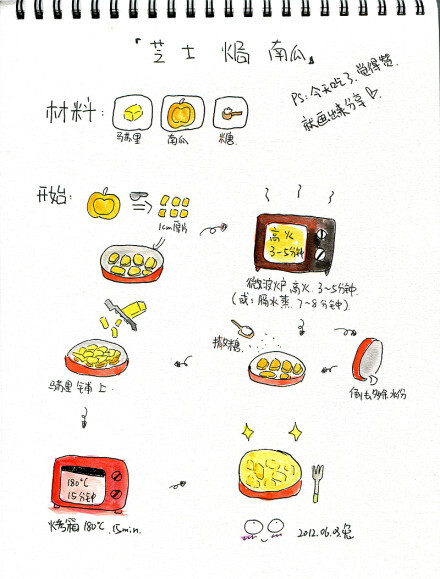 「芝士焗南瓜」
PS:今天吃了,觉得赞.
就画出来分享
材料:
马苏里
南瓜
糖
开始:
1cm厚片
高火
3~5分钟
微波炉高火.3~5分钟
(或:隔水蒸7~8分钟)
倒掉多余水份
撒糖
马苏里铺上.
180℃
15分钟
烤箱180℃.15min.
2012.06.03.